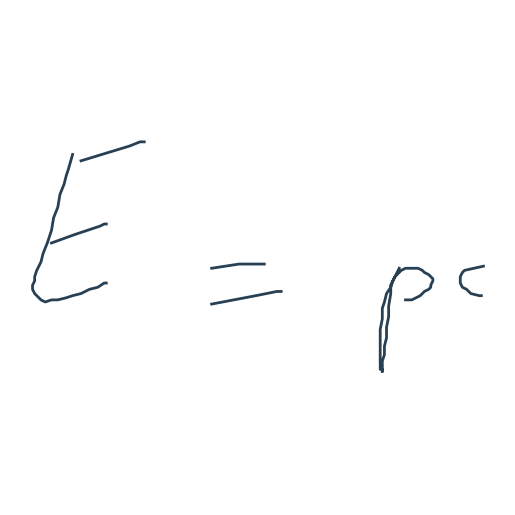 E = pc